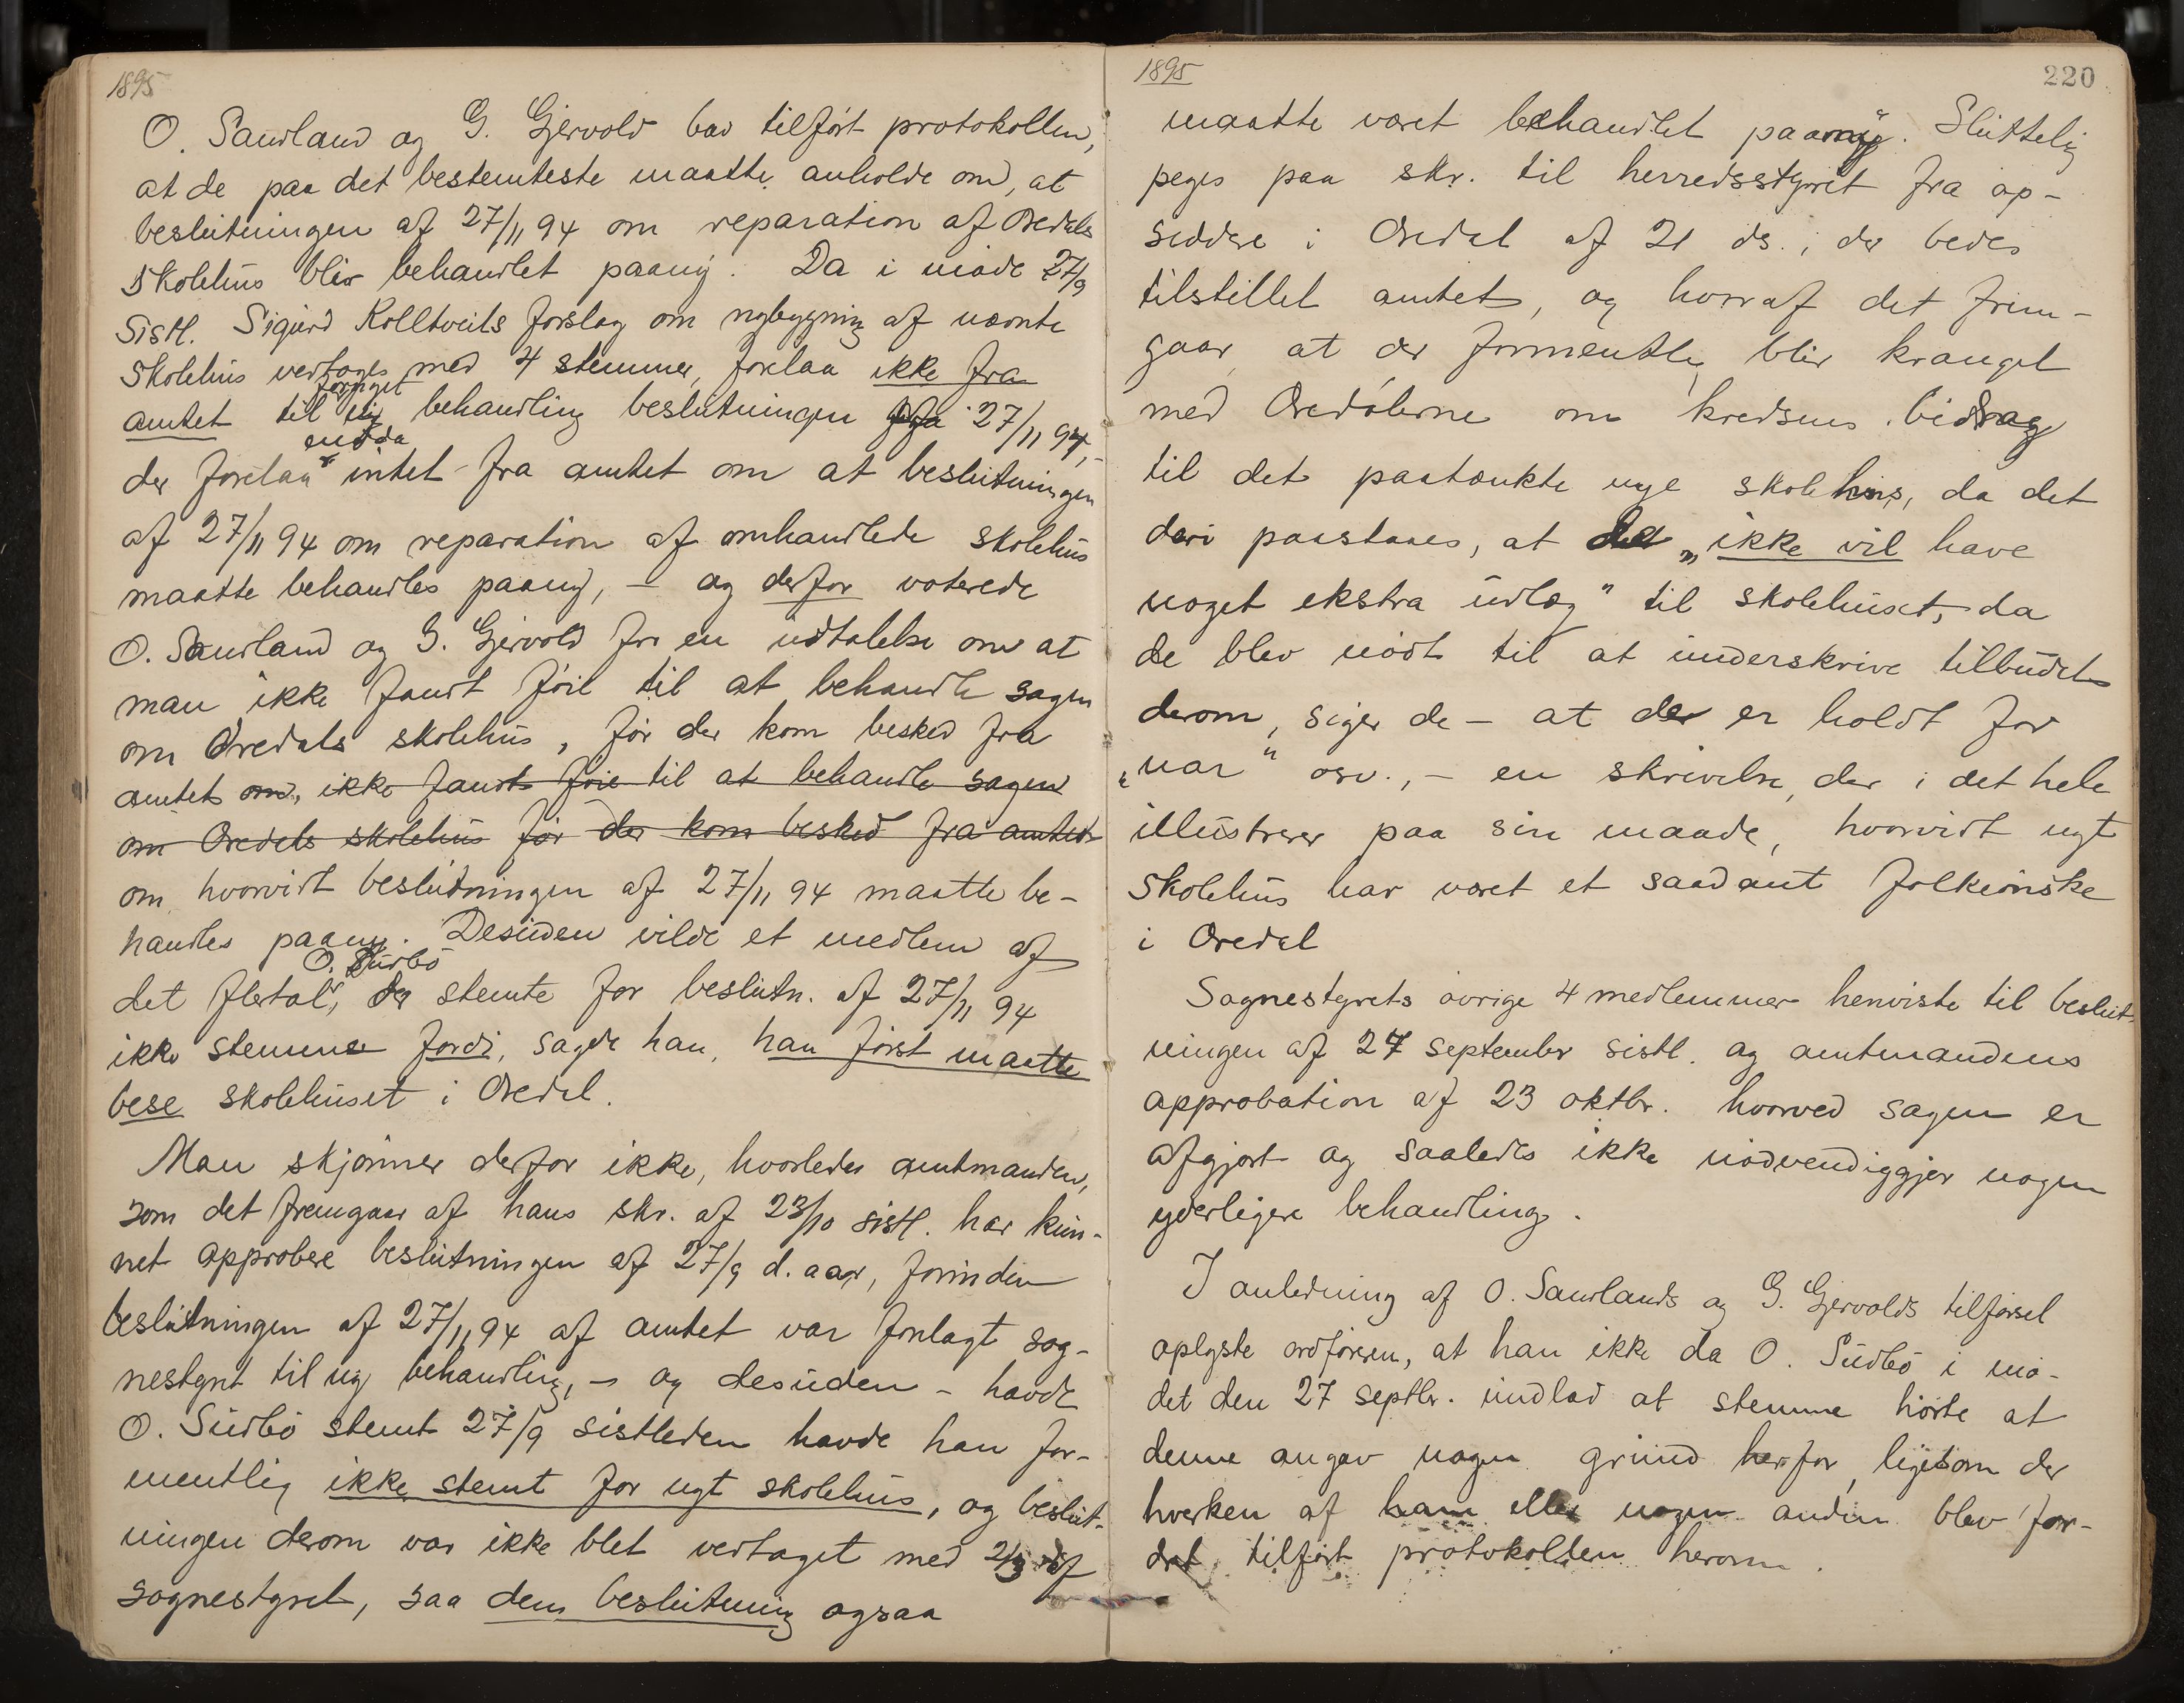 1895
O. Saurland og G. Gjervold bad tilført protokollen,
at de paa det bestemteste maatte anholde om, at
beslutningen af 27/11 94 om reparation af Oredals
skolehus blir behandlet paany. Da i møde 27/9
sistl. Sigurd Kolltveits forslag om nybygning af nævnte
skolehus vedtoges med 4 stemmer, forelaa ikke fra
fornyet
amtet til ny behandling beslutningen 27/11 94,-
endda
der forelaa intet fra amtet om at beslutningen
af 27/11 94 om reparation af omhandlede skolehus
maatte behandles paany, – og derfor voterede
O. Saurland og G. Gjervold for en udtalelse om at
man ikke fandt føie til at behandle sagen
om Oredals skolehus, før der kom besked fra
amtet om, ikke fandt føie til at behandle sagen
om Oredals skolehus før der kom besked fra amtet
om hvorvidt beslutningen af 27/11 94 maatte be-
handles paany. Desuden vilde et medlem af
O. Sudbø
det flertal, der stemte for beslutn. af 27/11 94
ikke stemme fordi, sagde han, han først maatte
bese skolehuset i Oredal.
Man skjønner derfor ikke, hvorledes amtmanden,
som det fremgaar af hans skr. af 23/10 sistl. har kun-
net approbere beslutningen af 27/9 d. aar, forinden
beslutningen af 27/11 94 af amtet var forelagt sog-
nestyret til ny behandling, – og desuden – havde
O. Sudbø stemt 27/9 sistleden havde han for-
mentlig ikke stemt for nyt skolehus, og beslut-
ningen derom var ikke blet vedtaget med 2/3 af
sognestyret, saa den beslutning ogsaa
1895
220
maatte været behandlet paany". Sluttelig
peges paa skr. til herredsstyret fra op-
siddere i Oredal af 21 ds., der bedes
tilstillet amtet, og hvoraf det frem-
gaar, at der formentlig blir krangel
med Oredølerne om kredsens bidrag
til det paatænkte nye skolehus, da det
deri paastaaes, at det „ikke vil have
noget ekstra udlæg" til skolehuset, da
de blev nødt til at underskrive tilbudet
derom, siger de – at der er holdt for
„nar" osv., – en skrivelse, der i det hele
illustrerer paa sin maade, hvorvidt nyt
skolehus har været et saadant folkeønske
i Oredal
Sognestyrets øvrige 4 medlemmer henviste til beslut-
ningen af 27 september sistl. og amtmandens
approbation af 23 oktbr. hvorved sagen er
afgjort og saaledes ikke nødvendiggjør nogen
yderligere behandling.
I anledning af O. Saurlands og G. Gjervolds tilførsel
oplyste ordføreren, at han ikke da O. Sudbø i mø-
det den 27 septbr. undlod at stemme hørte at
denne angav nogen grund herfor, ligesom der
hverken af ham eller nogen anden blev for-
dret tilført protokollen herom.